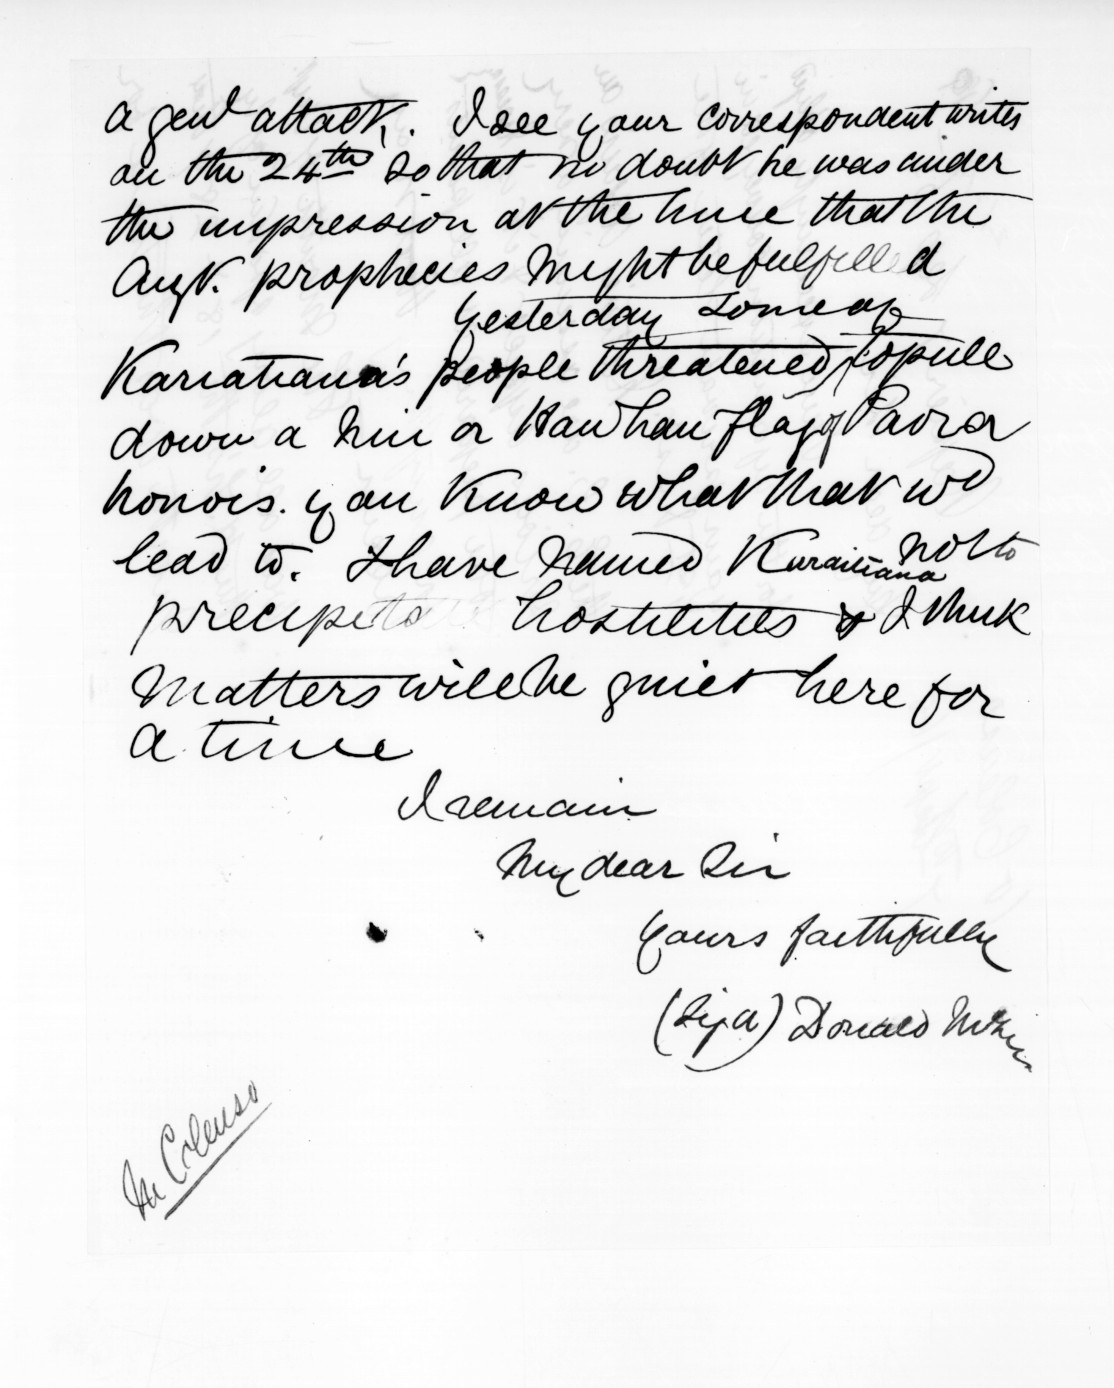 a genl attack. I see your correspondent writes
on the 24th so that no doubt he was under
the impression at the time that the
Augt. prophecies might be fulfilled
Yesterday some of
Karaitiana's people threatened to pull
down a Niu or Hau hau flag of Paora
honois. you know what that wd
lead to. I have warned Karaitiana not to
precipitate hostilities & I think
Matters will be quiet here for
a time
I remain
My dear Sir
Yours faithfully
(Sigd) Donald McLean
Mr Colenso